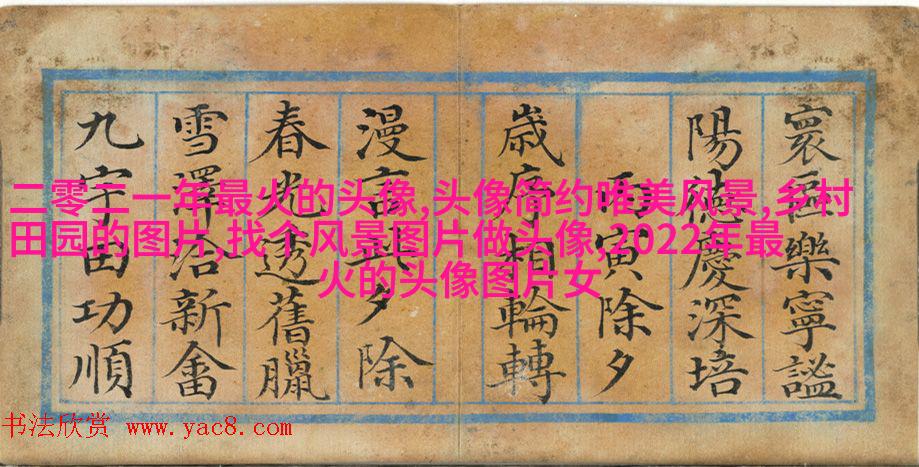 二零二一年最火的头像,头像简约唯美风景,乡村
田园的图片,找个风景图片做头像,2022年最
火的头像图片女
寰區樂寧謐
陽德慶深培
丙寅除夕
歲序相輪轉
漫言夕除
春光透舊臘
雪澤洽新畬
九宇田功順
书法欣赏 www.yac8.com